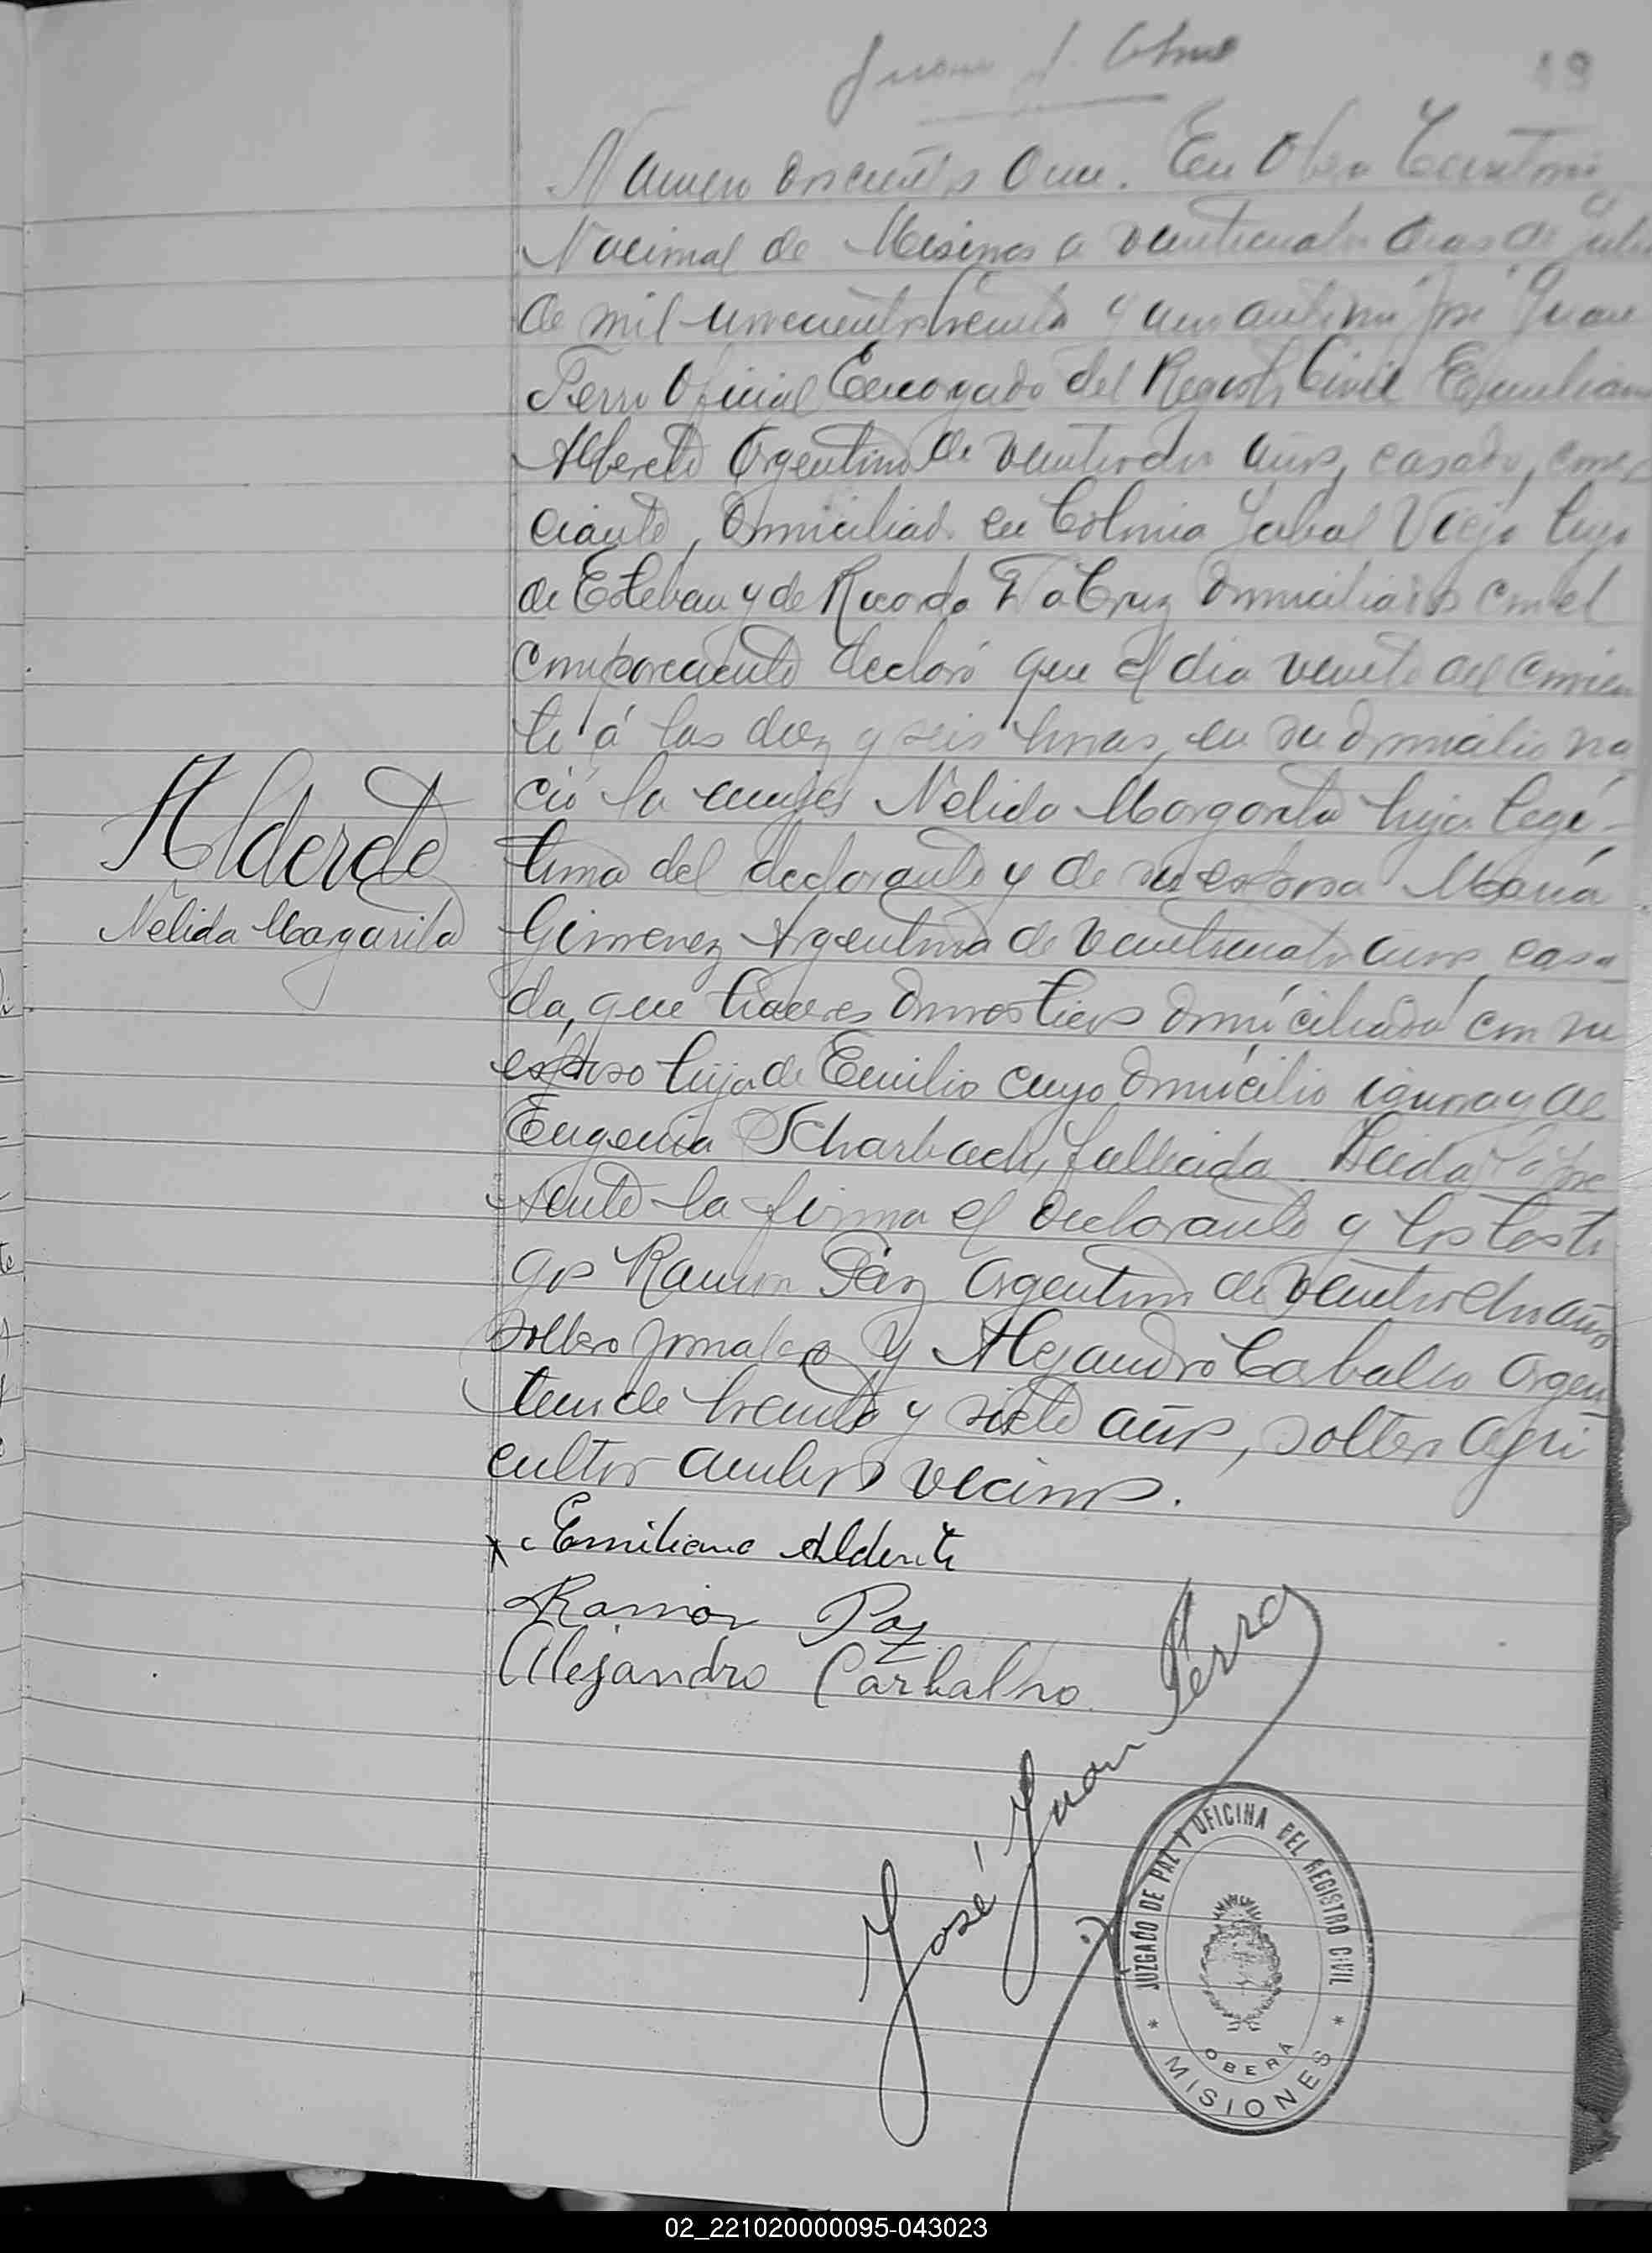 19
Numero doscientos once. En Obera Territorio
Nacional de Misiones a veinticuatro dias de julio
de mil novecientos treinta y uno ante mi José Juan
Perro Oficial Encargado del Registro Civil Emiliano
Alderete Argentino de veintiocho años, casado, comer
ciante, domiciliado en Colonia Yabal Viejo hijo
de Esteban y de Ricarda Da Cruz domiciliados con el
compareciente declaró que el dia veinte del corrien
te á las diez y seis horas, en su domicilio na
ció la mujer Nelida Margarita hija legi-
tima del declarante y de su esposa Maria
Alderete
Nelida Magarita
Gimenez Argentina de veinticuatro años, casa
da, que haceres domesticos domiciliada con su
esposo hija de Emilio cuyo domicilio ignora y de
Eugenia Scharbach, fallecida. Leida la pre
sente la firma el declarante y los testi
gos Ramon Páz Argentino de veintiocho años
soltero jornalero y Alejandro Carballo Argen
tino de treinta y siete años, soltero agri
cultor ambos vecinos.
x Emiliano Alderete
Ramon Paz
Alejandro Carbalho
José Juan Perro
JUZGADO DE PAZ Y OFICINA DEL REGISTRO CIVIL
OBERÁ
* MISIONES *
02_221020000095-043023